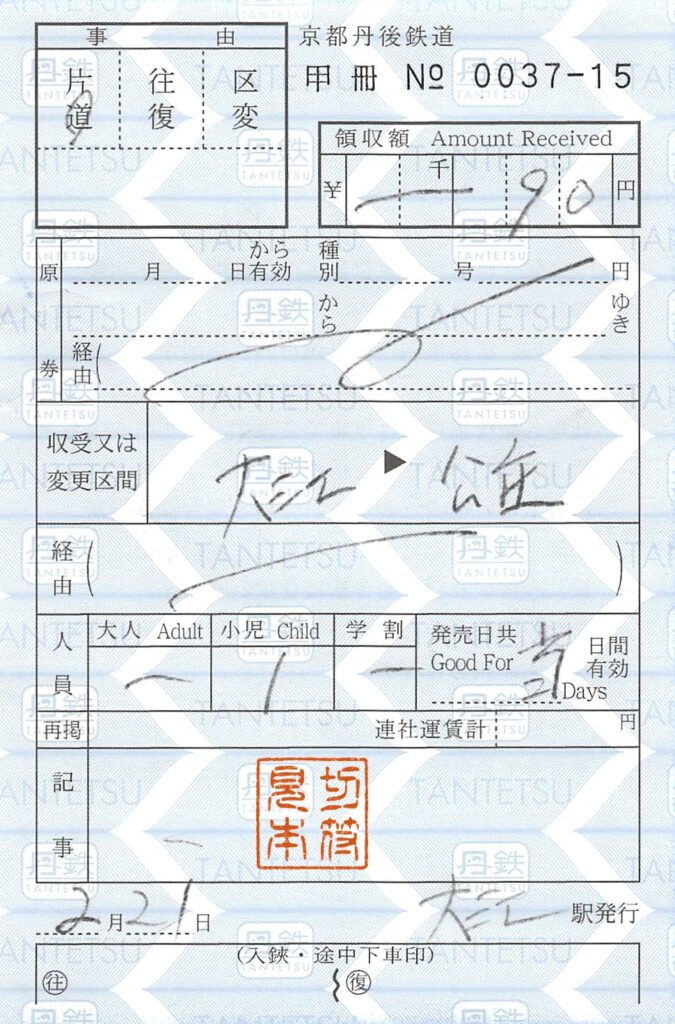 事由
京都丹後鉄道
片道
往復
区変
甲冊 № 0037-15
領収額 Amount Received
￥ 千 90 円
原券
月 日から有効 種別 号 円
から ゆき
経由(
収受又は変更区間
大江 ▶ 公庄
経由( )
人員
大人 Adult 小児 Child 学割
一 1 一
発売日共 Good For 当 Days 日間有効
再掲 連社運賃計 円
記事
切符見本
2月21日
大江 駅発行
(入鋏・途中下車印)
往 復
丹鉄
TANTETSU